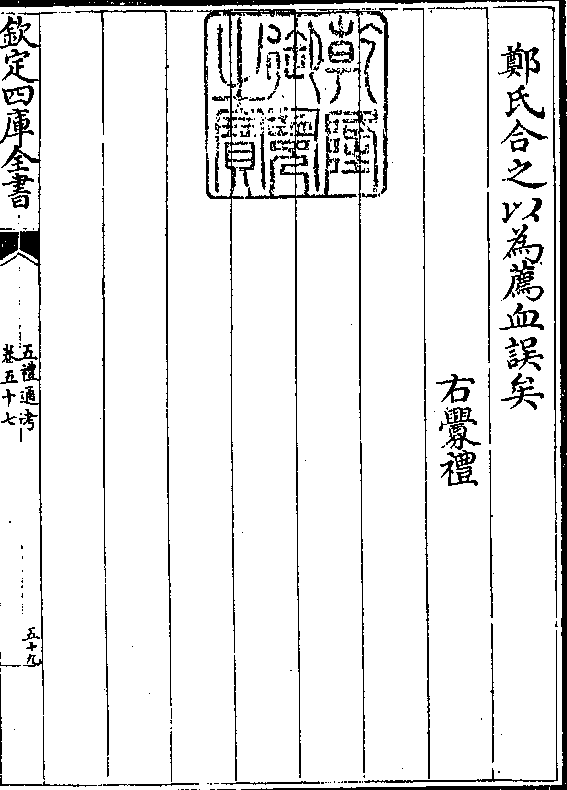 鄭氏合之以為薦血誤矣
右釁禮
乾隆御覽之寶
欽定四庫全書
五禮通考
卷五十七
五十九